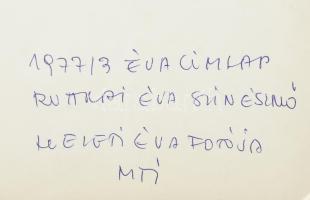 1977/3 ÉVA CÍMLAP
RUTTKAI ÉVA SZÍNÉSZNŐ
KELETI ÉVA FOTÓJA
MTI